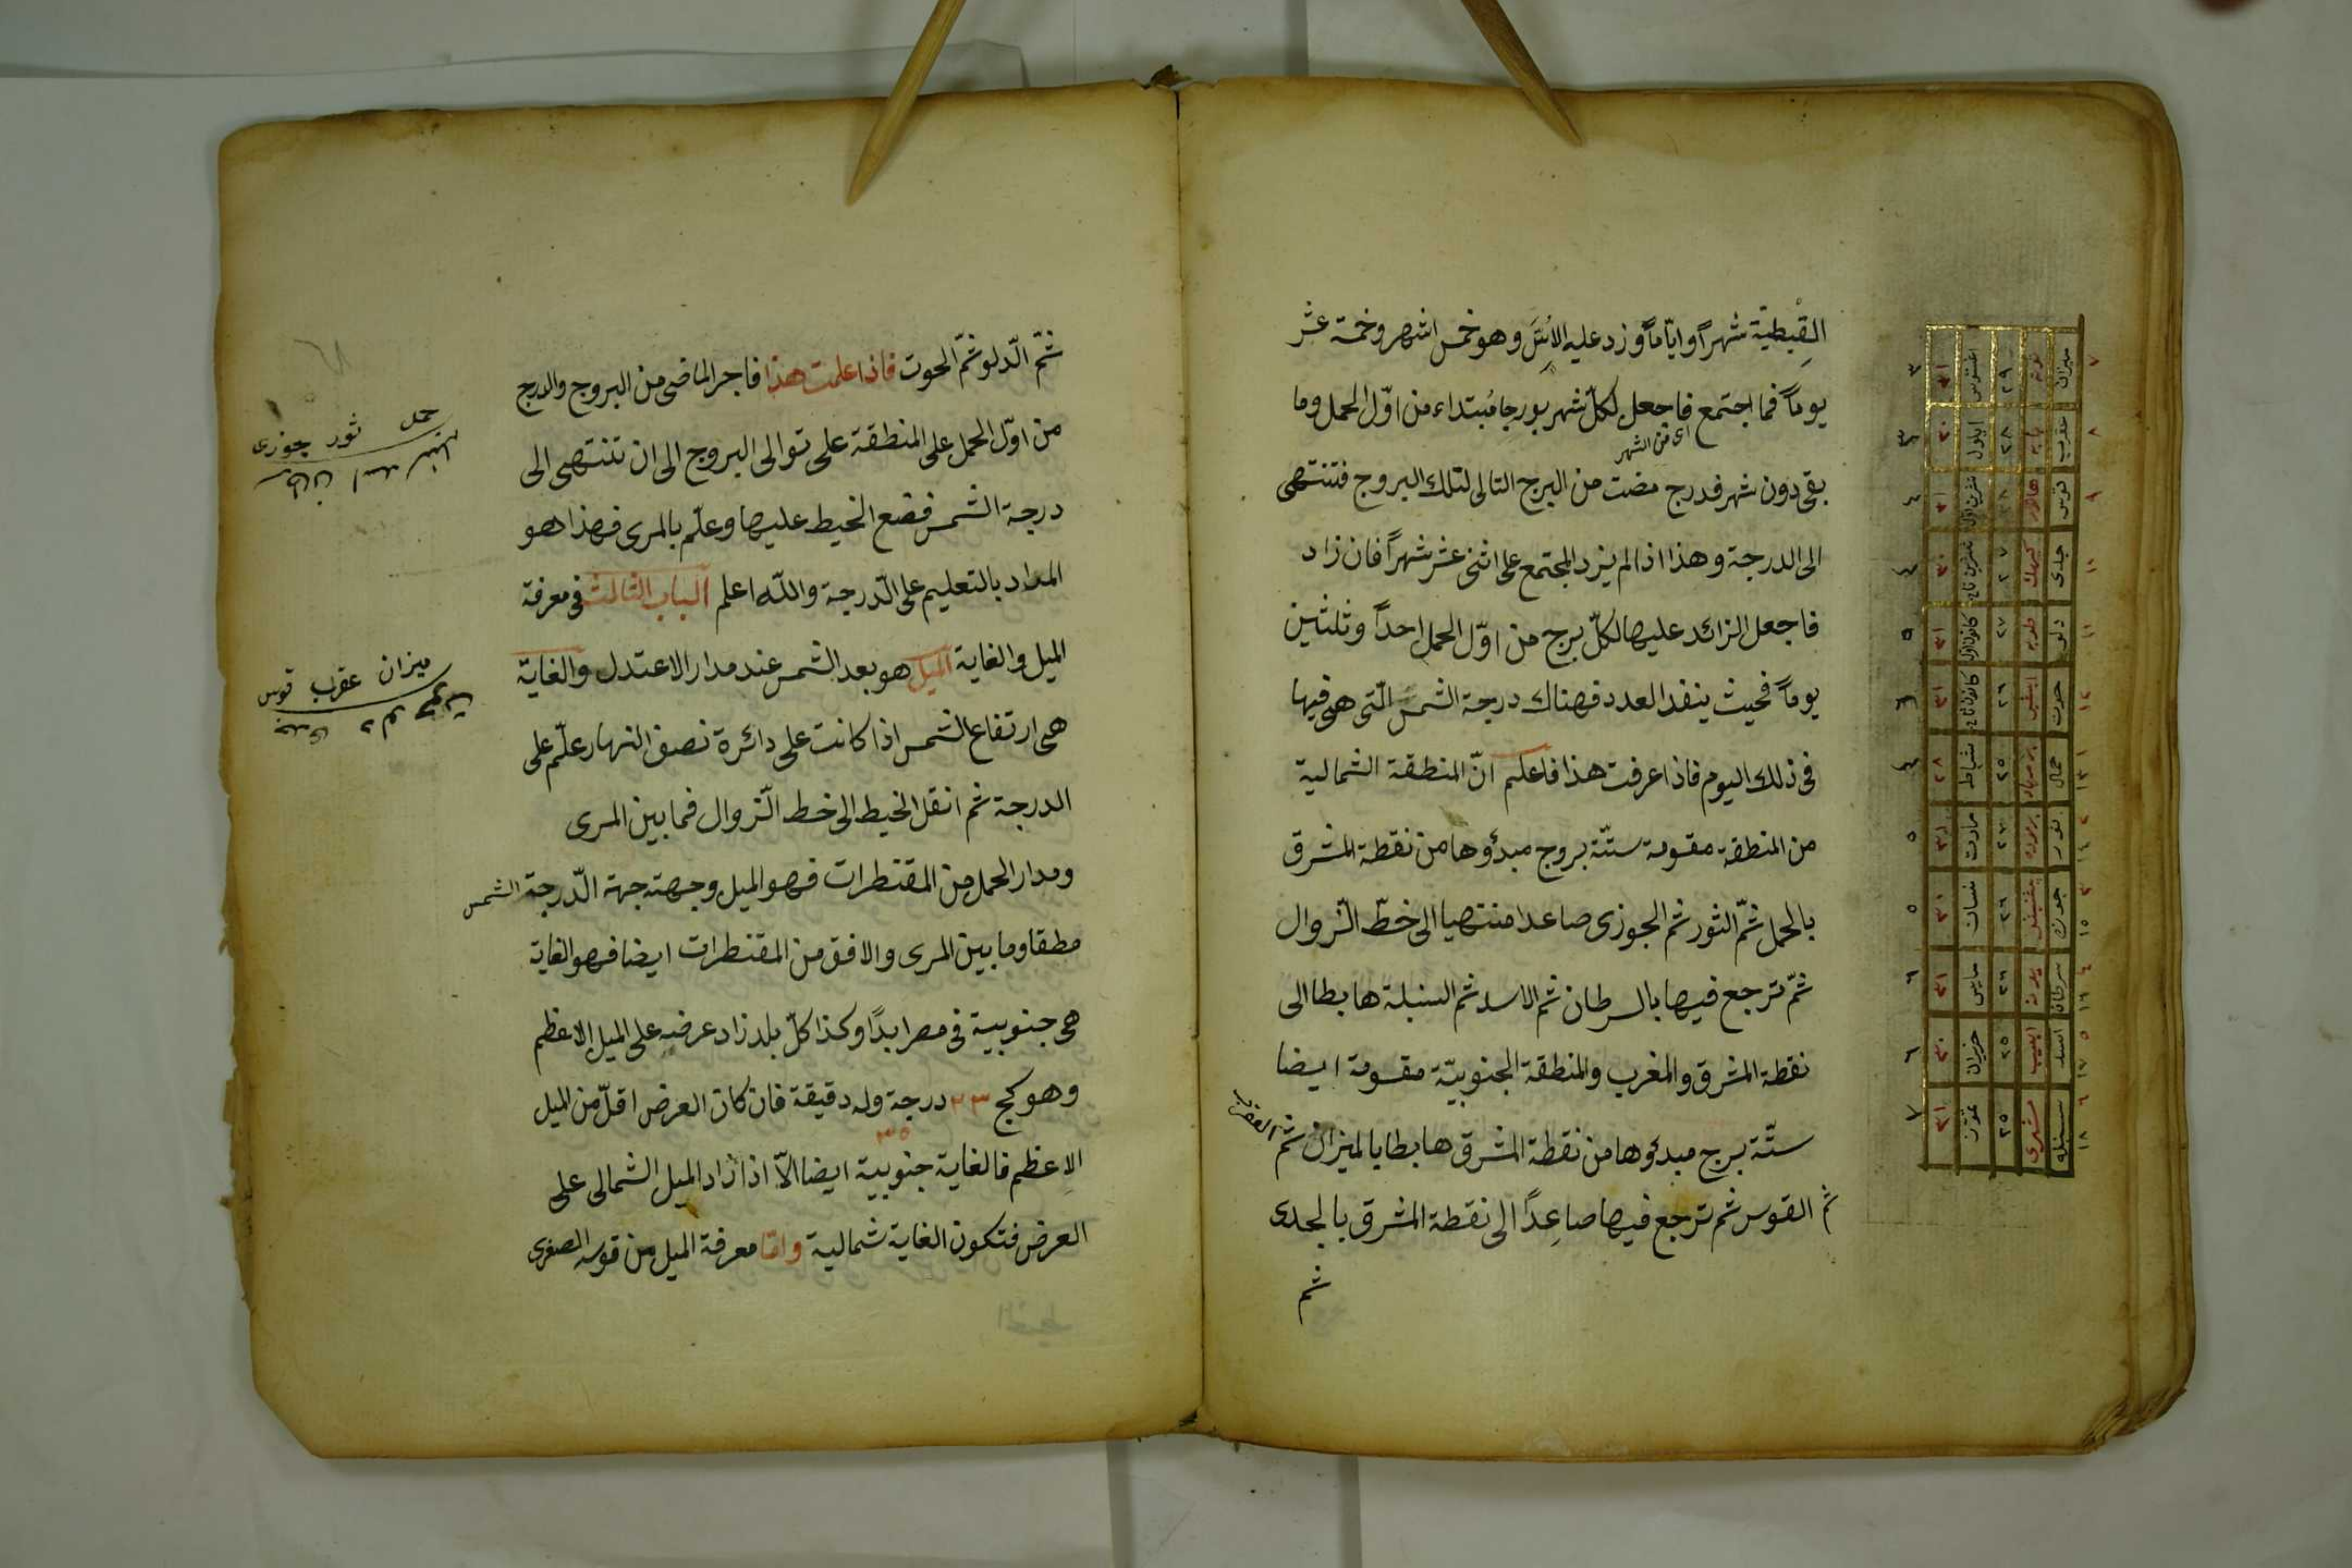 القبطيّة شهراً وايّاماً وزد عليه الأسّ وهو خمس اشهر وخمسة عشر
يوماً فما اجتمع فاجعل لكلّ شهر بورجا مُبتداء من اوّل الحمل وما
اى من الشهر
بقى دون شهر فدرج مضت من البرج التالى لتلك البروج فتنتهى
الى الدرجة وهذا اذا لم يزد المجتمع على اثنى عشر شهراً فان زاد
فاجعل الزائد عليها لكلّ برج من اوّل الحمل احداً وثلثين
يوماً فحيث ينفد العدد فهناك درجة الشمس الّتى هى فيها
فى ذلك اليوم فاذا عرفت هذا فاعلم انّ المنطقة الشمالية
من المنطقة مقسومة ستّة بروج مبدؤها من نقطة المشرق
بالحمل ثمّ الثور ثم الجوزى صاعدا منتهيا الى خطّ الزّوال
ثمّ ترجع فيها بالسرطان ثم الاسد ثم السنبلة هابطا الى
نقطة المشرق والمغرب والمنطقة الجنوبيّة مقسومة ايضا
ستّة برج مبدؤها من نقطة المشرق هابطا بالميزان ثم العقرب
ثم القوس ثم ترجع فيها صاعِداً الى نقطة المشرق بالجدى
ثم
٧ ٨ ٩ ١٠ ١١ ١٢ ١ ١٣ ٢ ١٤ ٣ ١٥ ٤ ١٦ ٥ ١٧ ٦ ١٨
ميزان عقرب قوس جدى دلو حوت حمل ثور جوزه سرطان اسد سنبله
توت بابه هاتور كيهك طوبه امشير برمهات برموده بشنس بونه ابيب مسرى
٢٩ ٢٨ ٢٨ ٢٧ ٢٧ ٢٦ ٢٥ ٢٦ ٢٦ ٢٦ ٢٥ ٢٥
اغستوس ايلول تشرين اول تشرين ثانى كانون اول كانون ثانى شباط مارت نسان مايس حزيران تموز
٣١ ٣٠ ٣١ ٣٠ ٣١ ٣١ ٢٨ ٣١ ٣٠ ٣١ ٣٠ ٣١
ثمّ الدّلو ثمّ الحوت فاذا علمت هذا فاجر الماضى من البروج والدرج
من اوّل الحمل على المنطقة على توالى البروج الى ان تنتهى الى
درجة الشمس فضع الخيط عليها وعلّم بالمرى فهذا هو
المراد بالتعليم على الدّرجة واللّه اعلم الباب الثالث فى معرفة
الميل والغاية الميل هو بعد الشمس عند مدار الاعتدل والغاية
هى ارتفاع الشمس اذا كانت على دائرة نصف النهار علّم على
الدرجة ثم انقل الخيط الى خط الزّوال فما بين المرى
ومدار الحمل من المقنطرات فهو الميل وجهته جهة الدّرجة الشمس
مطقا وما بين المرى والافق من المقنطرات ايضا فهو الغاية
هى جنوبية فى مصر ابدًا وكذا كلّ بلد زاد عرضه على الميل الاعظم
وهو كج ٢٣ درجة وله دقيقة فان كان العرض اقلّ من الميل
٣٥
الاعظم فالغاية جنوبية ايضا الاّ اذا زاد الميل الشمالى على
العرض فتكون الغاية شمالية وامّا معرفة الميل من قوسه الصغرى
حمل ثور جوزى
سرطان اسد سنبله
ميزان عقرب قوس
جدى دلو حوت